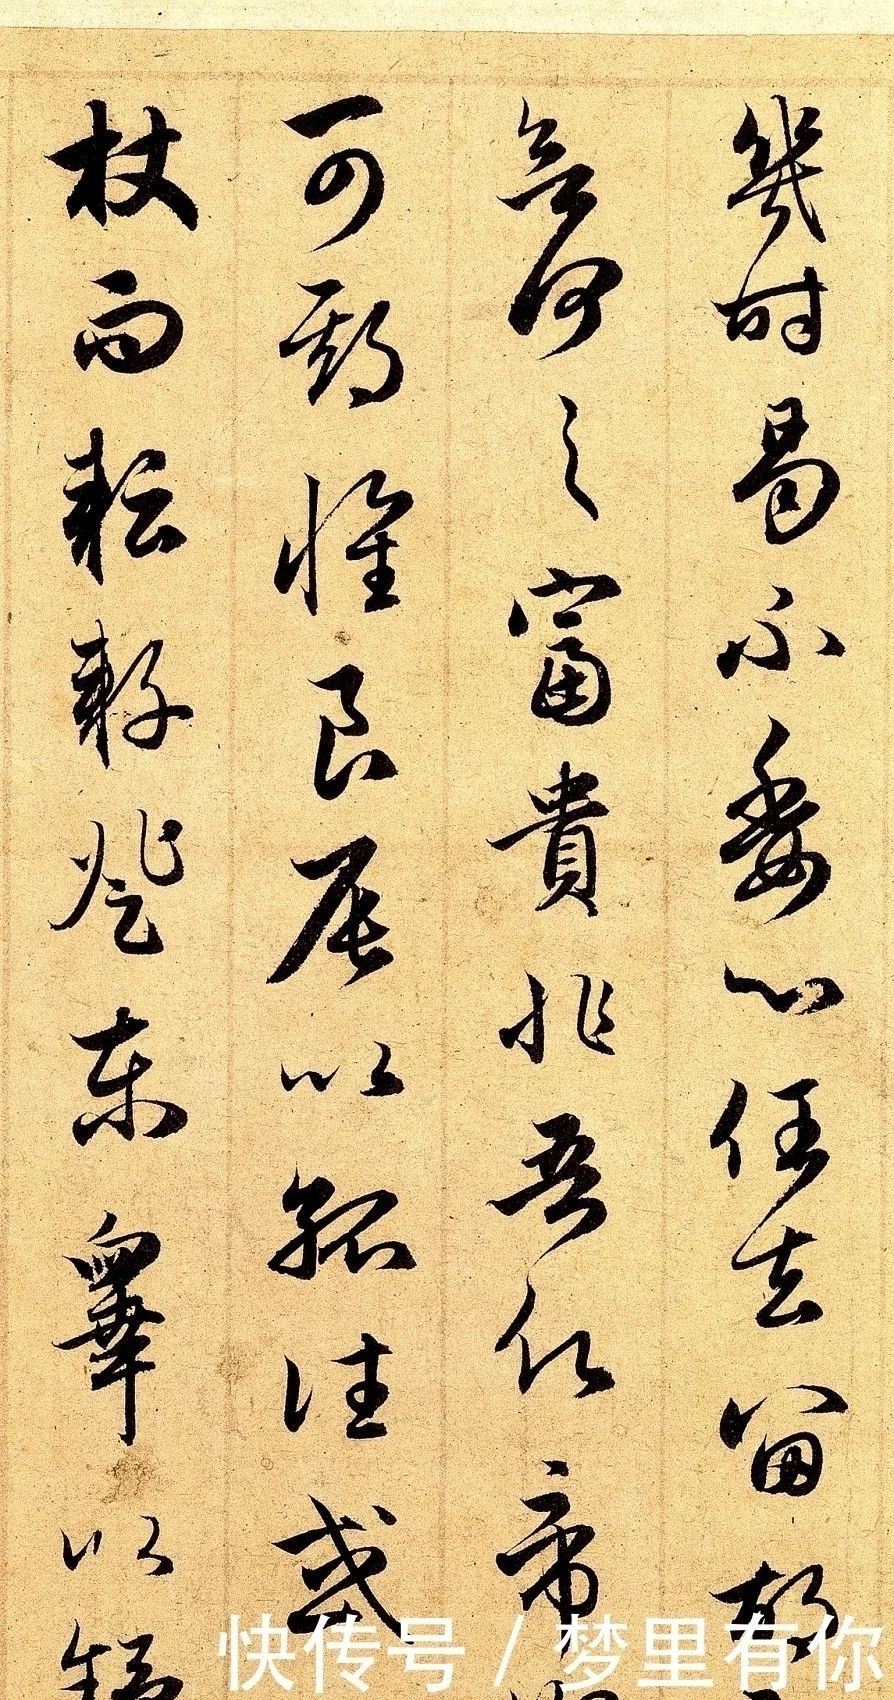 幾時曷不委心任去留故
何之富貴非吾願帝
可期懷良辰以孤往或
杖而耘耔登東皋以舒
快传号 / 梦里有你